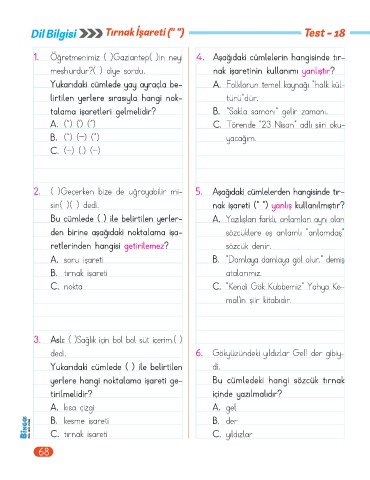 Dil Bilgisi Tırnak İşareti (" ") Test - 18
1. Öğretmenimiz ( )Gaziantep( )in neyi
meşhurdur?( ) diye sordu.
Yukarıdaki cümlede yay ayraçla be-
lirtilen yerlere sırasıyla hangi nok-
talama işaretleri gelmelidir?
C. (–) (.) (–)
2. ( )Geçerken bize de uğrayabilir mi-
sin( )( ) dedi.
Bu cümlede ( ) ile belirtilen yerler-
den birine aşağıdaki noktalama işa-
retlerinden hangisi getirilemez?
A. soru işareti
B. tırnak işareti
C. nokta
3. Aslı: ( )Sağlık için bol bol süt içerim.( )
dedi.
Yukarıdaki cümlede ( ) ile belirtilen
yerlere hangi noktalama işareti ge-
tirilmelidir?
A. kısa çizgi
B. kesme işareti
C. tırnak işareti
4. Aşağıdaki cümlelerin hangisinde tır-
nak işaretinin kullanımı yanlıştır?
A. Folklorun temel kaynağı "halk kül-
türü"dür.
B. "Sakla samanı" gelir zamanı.
C. Törende "23 Nisan" adlı şiiri oku-
yacağım.
5. Aşağıdaki cümlelerden hangisinde tır-
nak işareti (" ") yanlış kullanılmıştır?
A. Yazılışları farklı, anlamları aynı olan
sözcüklere eş anlamlı "anlamdaş"
sözcük denir.
B. "Damlaya damlaya göl olur." demiş
atalarımız.
C. "Kendi Gök Kubbemiz" Yahya Ke-
mal'in şiir kitabıdır.
6. Gökyüzündeki yıldızlar Gel! der gibiy-
di.
Bu cümledeki hangi sözcük tırnak
içinde yazılmalıdır?
A. gel
B. der
C. yıldızlar
BİNGO
68